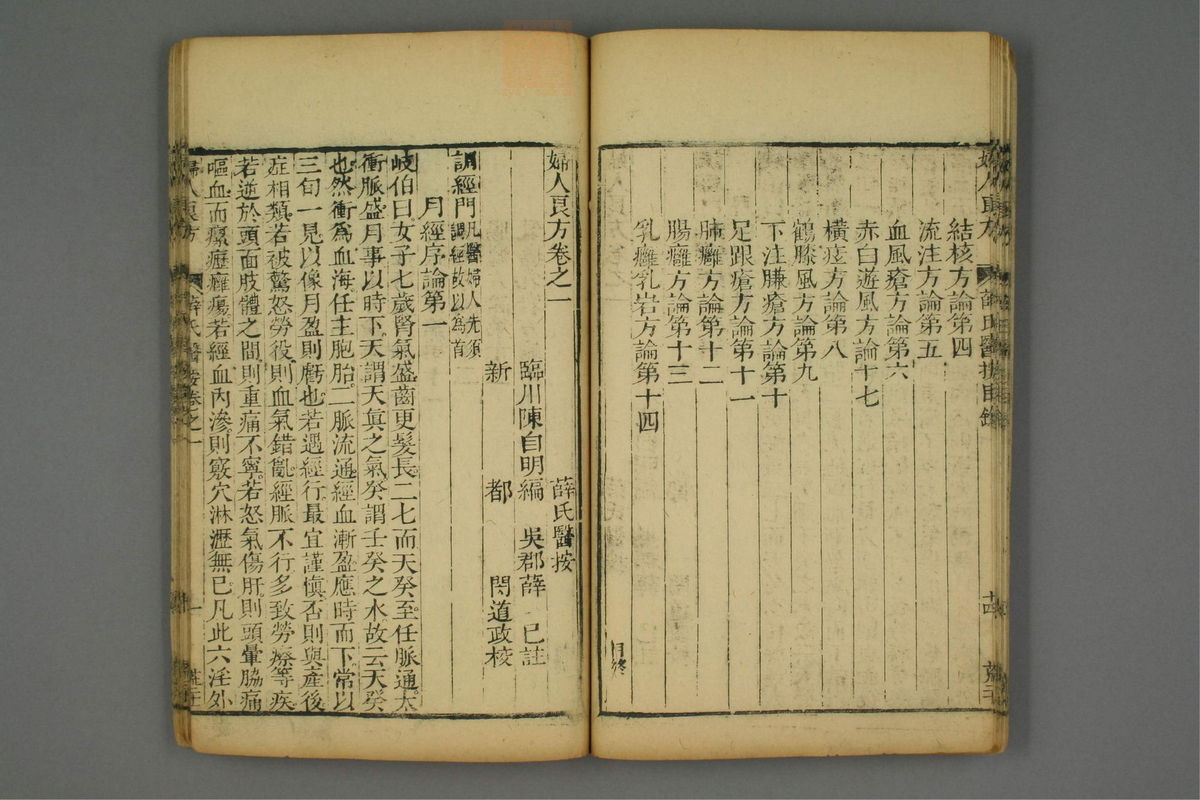 婦人良方
薛氏醫按目錄
結核方論第四
流注方論第五
血風瘡方論第六
赤白遊風方論十七
橫痃方論第八
鶴膝風方論第九
下注臁瘡方論第十
足跟瘡方論第十一
肺癰方論第十二
腸癰方論第十三
乳癰乳岩方論第十四
目終
婦人良方卷之一
薛氏醫按
臨川陳自明編 吳郡薛 已註
新都 閔道政校
調經門 凡醫婦人先須調經故以為首
月經序論第一
岐伯曰女子七歲腎氣盛齒更髮長二七而天癸至任脈通太
衝脈盛月事以時下天謂天眞之氣癸謂壬癸之水故云天癸
也然衝為血海任主胞胎二脈流通經血漸盈應時而下常以
三旬一見以像月盈則虧也若遇經行最宜謹慎否則與產後
症相類若被驚怒勞役則血氣錯亂經脈不行多致勞瘵等疾
若逆於頭面肢體之間則重痛不寧若怒氣傷肝則頭暈脇痛
嘔血而瘰癧癰瘍若經血內滲則竅穴淋瀝無已凡此六淫外
婦人良方
薛氏醫按卷之一
一